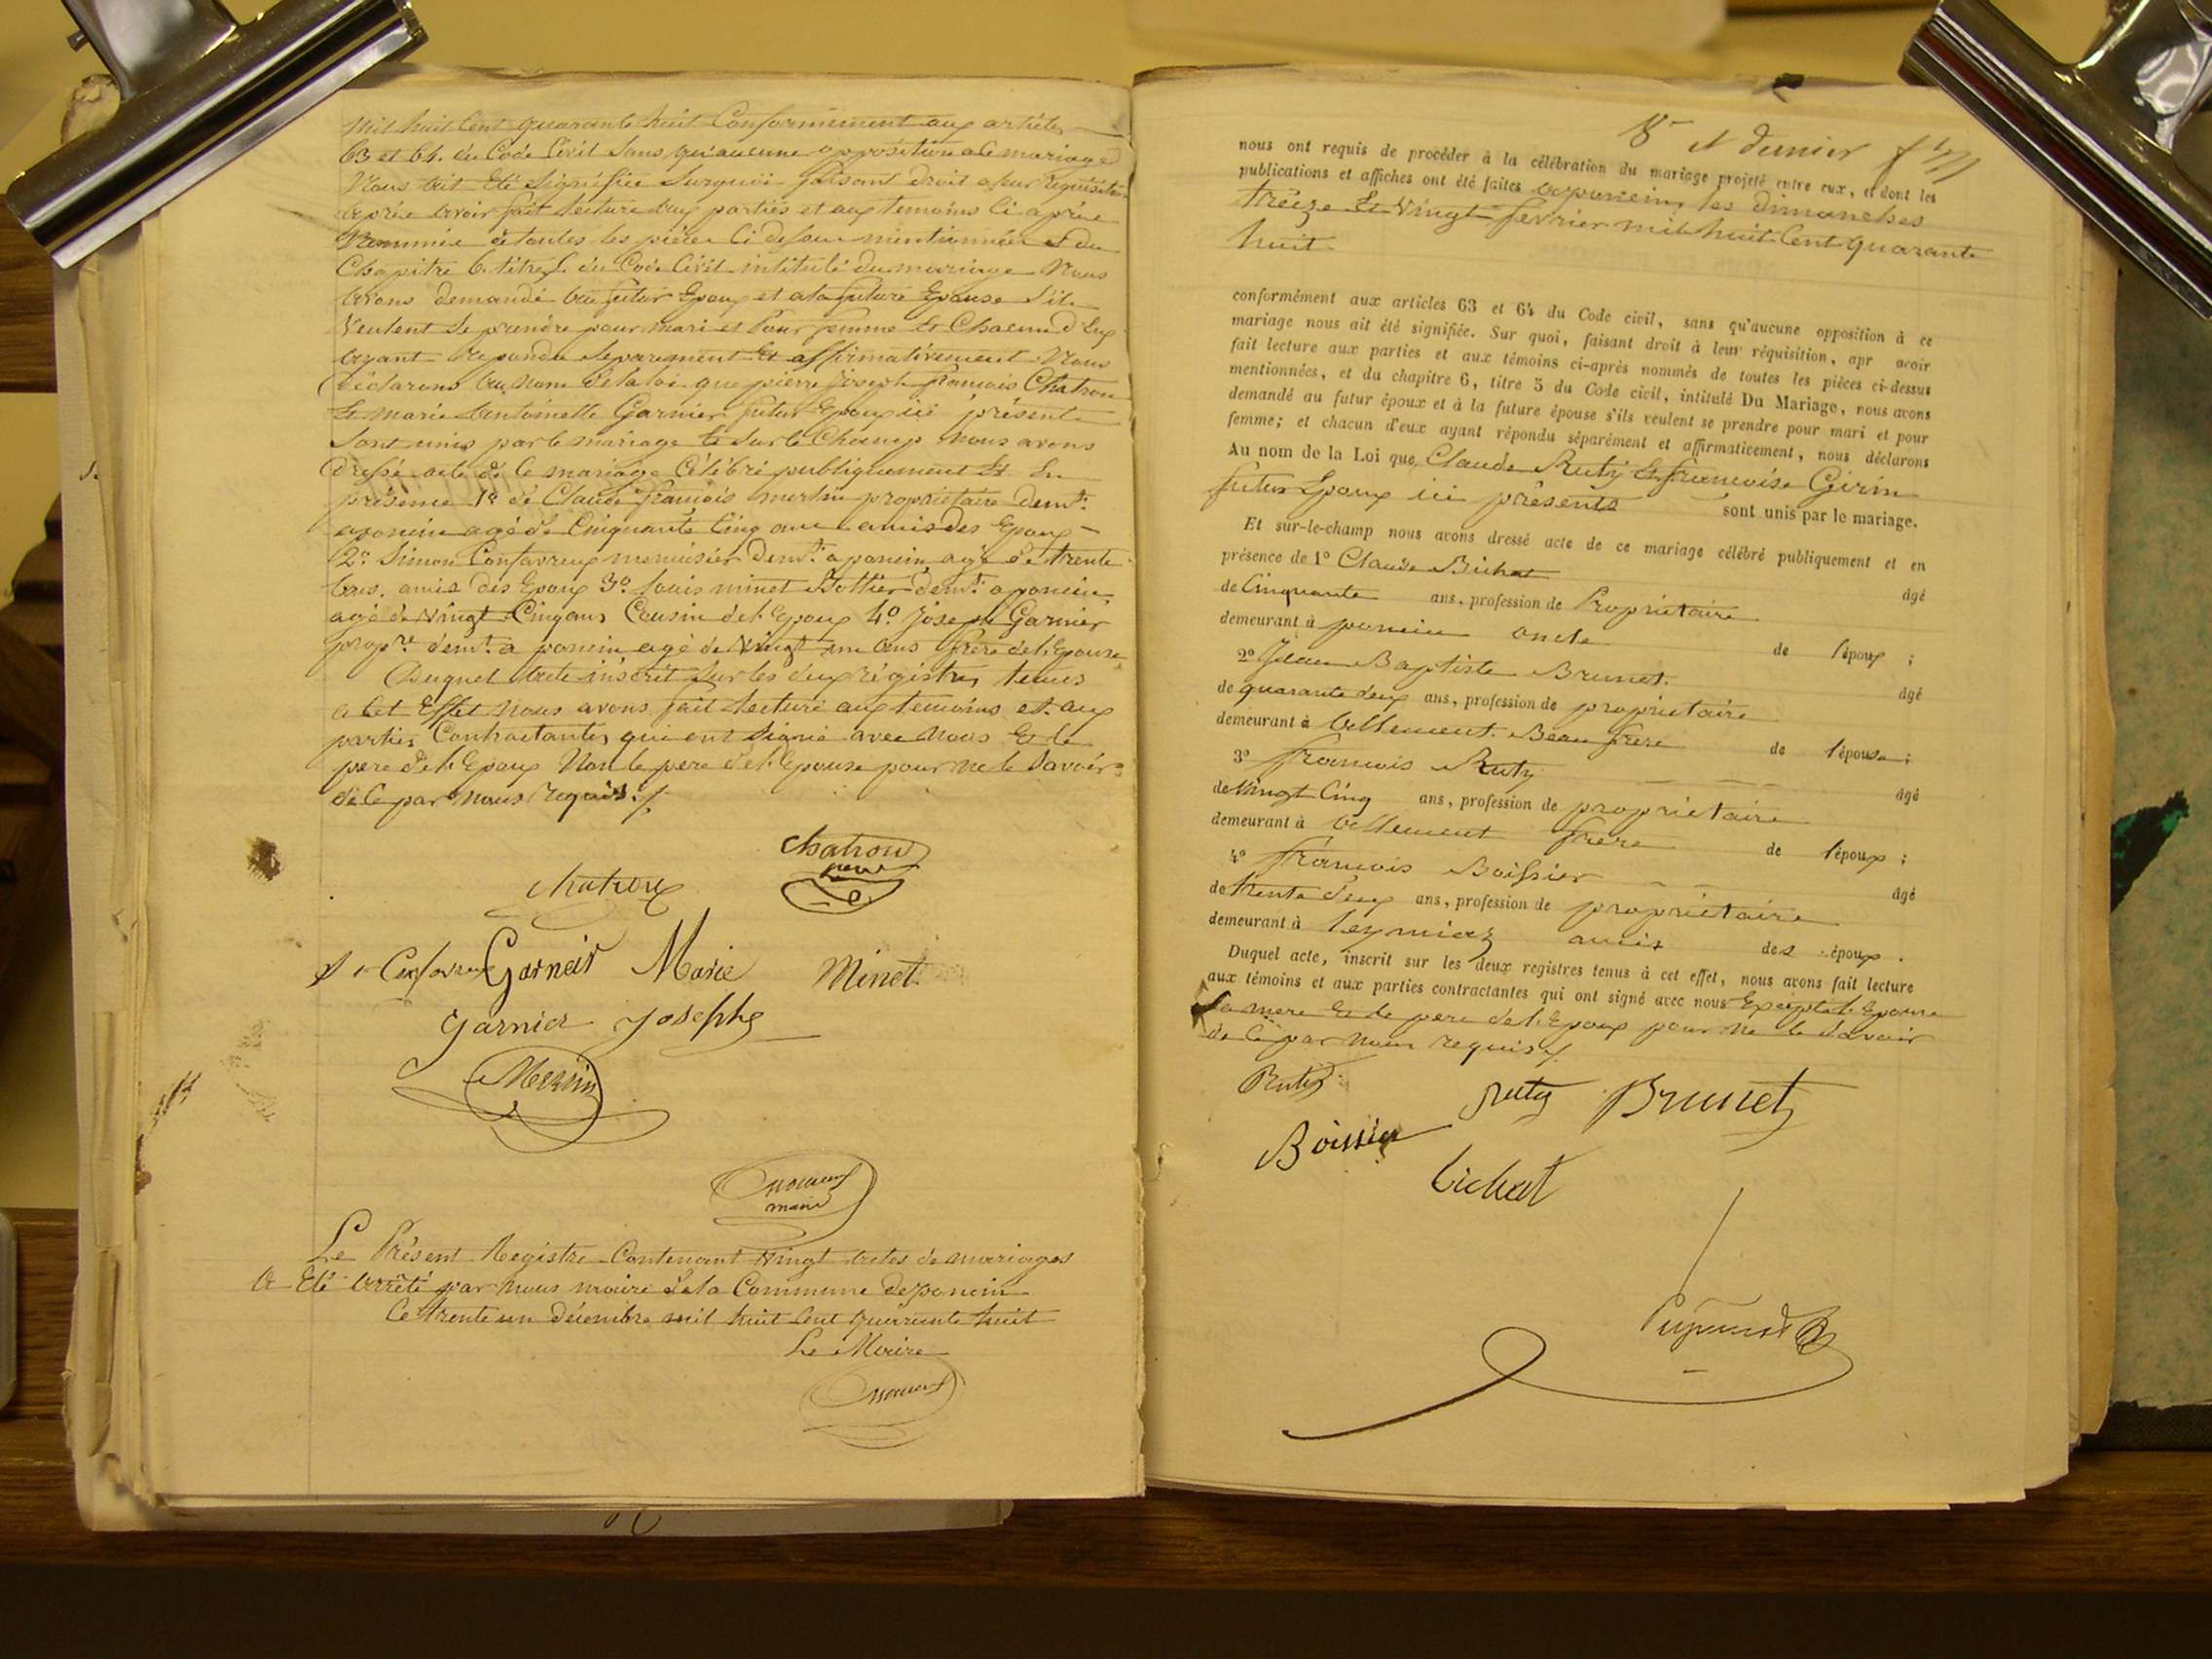 mil huit Cent quarante huit Conformément aux articles
63 et 64. du Code Civil Sans qu'aucune opposition a ce mariage
Nous ait Eté Signifiée Surquoi faisant droit a leur réquisition
après avoir fait lecture aux parties et aux temoins Ci après
Nommés de toutes les pièces Ci dessus mentionnées et du
Chapitre 6. titre 5. du Code Civil intitulé du mariage Nous
avons demandé au futur Epoux et a la future Epouse S'ils
Veulent Se prendre pour mari et Pour femme Et Chacun d'Eux
ayant repondu Separement Et affirmativement Nous
déclarons au nom de la loi que pierre Joseph françois Chatron
Et marie antoinette Garnier futur Epoux ici présents
Sont unis par le mariage Et Sur le Champ Nous avons
dressé acte de Ce mariage Célébré publiquement Et En
présence 1º de Claude françois merlin propriétaire demt.
a poncin agé de Cinquante Cinq ans amis des Epoux
2º Simon Confavreux menuisier demt. a poncin agé de trente
ans. amis des Epoux 3º Louis minet Bottier demt. a poncin
agé de Vingt Cinq ans Cousin de l'Epoux 4º Joseph Garnier
propre. demt. a poncin agé de Vingt un ans frère de l'Epouse
Duquel acte inscrit Sur les deux régistres tenus
a Cet Effet Nous avons fait lecture aux temoins et aux
parties Contractantes qui ont Signé avec Nous Et le
pere de l'Epoux Non le pere de l'Epouse pour ne le Savoir
de Ce par Nous requis./.
Chatron
pere
Chatron
Confavreux Garneir Marie Minet
Garnier Josephe
Merlin
maire
Le Présent Registre Contenant Vingt actes de mariages
a Eté arrêté par Nous maire de la Commune de poncin
Ce trente un décembre mil huit Cent quarante huit
Le Maire
8e et dernier f
nous ont requis de procéder à la célébration du mariage projeté entre eux, et dont les
publications et affiches ont été faites a poncin, les dimanches
treize Et Vingt fevrier mil huit Cent quarante
huit
conformément aux articles 63 et 64 du Code civil, sans qu'aucune opposition à ce
mariage nous ait été signifiée. Sur quoi, faisant droit à leur réquisition, apr avoir
fait lecture aux parties et aux témoins ci-après nommés de toutes les pièces ci-dessus
mentionnées, et du chapitre 6, titre 5 du Code civil, intitulé Du Mariage, nous avons
demandé au futur époux et à la future épouse s'ils veulent se prendre pour mari et pour
femme; et chacun d'eux ayant répondu séparément et affirmativement, nous déclarons
Au nom de la Loi que Claude Ruty Et françoise Girin
futurs Epoux ici présents sont unis par le mariage.
Et sur-le-champ nous avons dressé acte de ce mariage célébré publiquement et en
présence de 1º Claude Bichat âgé
de Cinquante ans, profession de Propriétaire
demeurant à poncin oncle de l'époux ;
2º Jean Baptiste Brunet. âgé
de quarante deux ans, profession de propriétaire
demeurant à Allement. Beau frère de l'épouse ;
3º françois Ruty âgé
de Vingt Cinq ans, profession de propriétaire
demeurant à Allement frère de l'époux ;
4º françois Boissier âgé
de trente deux ans, profession de propriétaire
demeurant à leymiaz amis des époux .
Duquel acte, inscrit sur les deux registres tenus à cet effet, nous avons fait lecture
aux témoins et aux parties contractantes qui ont signé avec nous Excepté l'Epouse
Sa mere Et le pere de l'Epoux pour ne le Savoir
de Ce par nous requis./.
Ruty
Ruty Brunet
Boissier
bichat